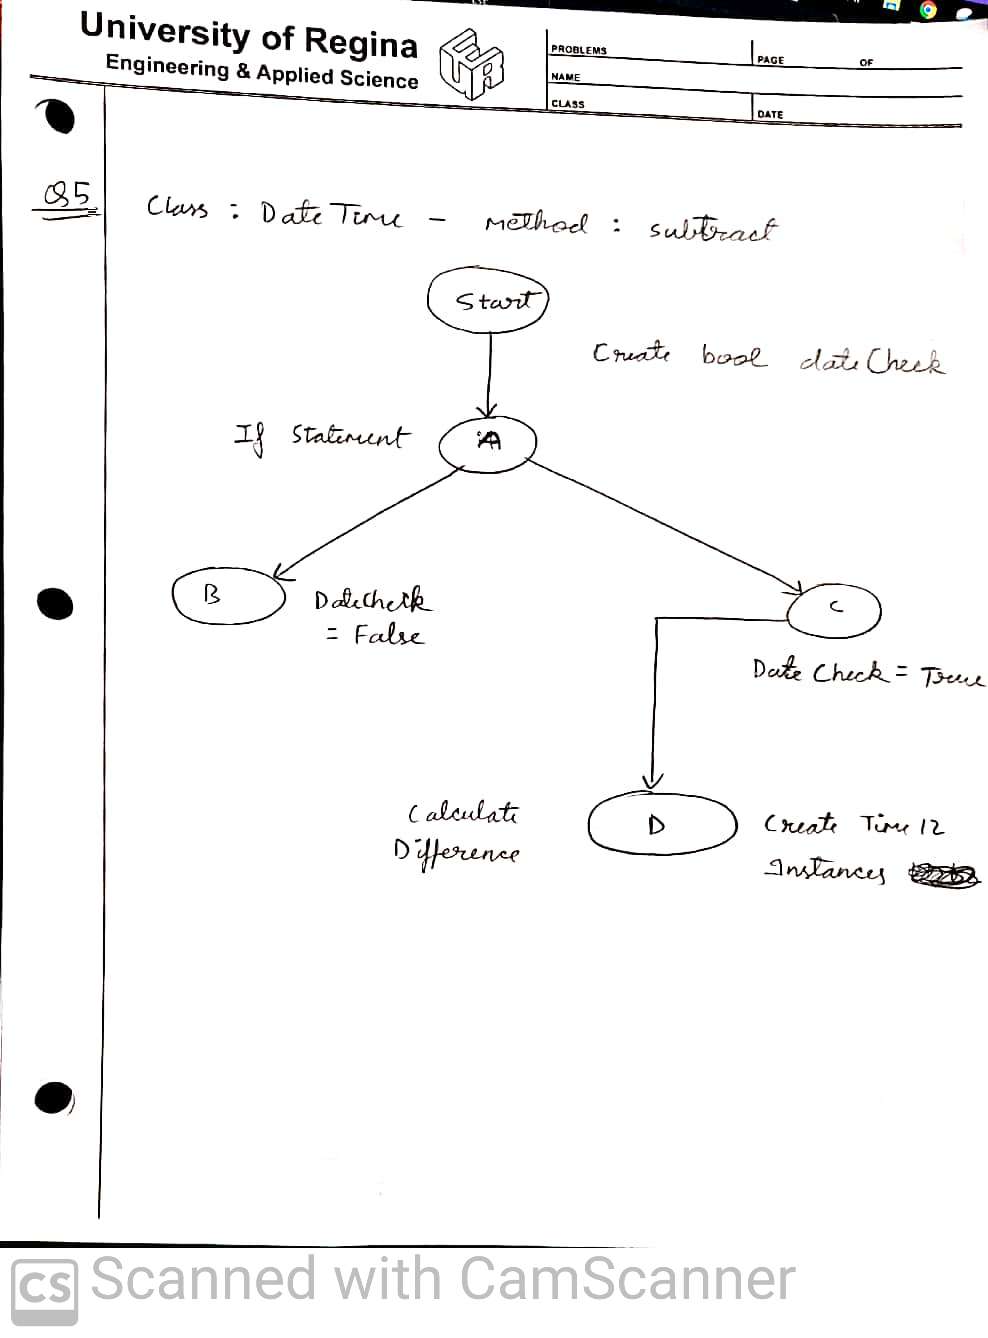 University of Regina
Engineering & Applied Science
PROBLEMS
PAGE OF
NAME
CLASS
DATE
Q5
Class : DateTime - method : subtract
Start
Create bool dateCheck
If Statement
A
B
Datecheck
= False
C
Date Check = True
Calculate
Difference
D
Create Time12
Instances
CS Scanned with CamScanner